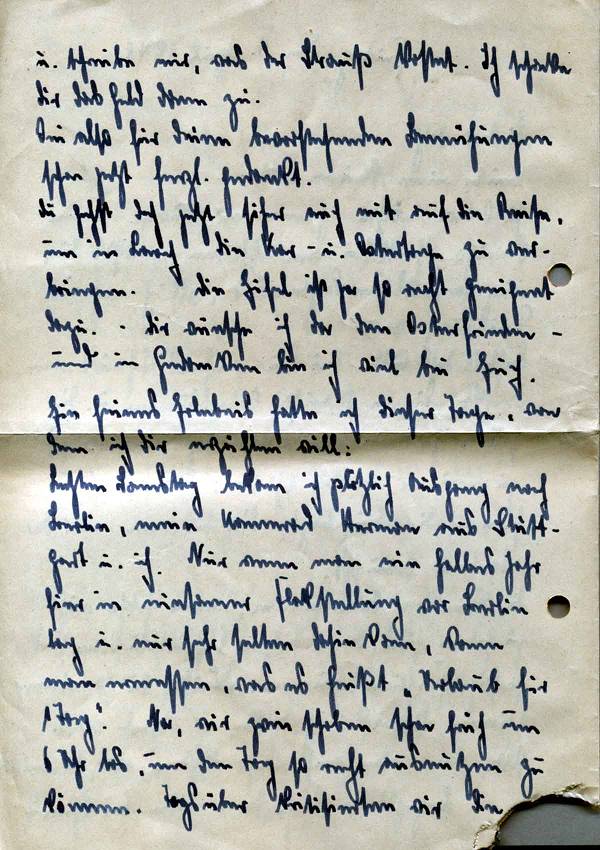 u. schreibe mir, was der Strauß kostet. Ich schicke
dir das Geld dann zu.
Sei also für deine bevorstehenden Bemühungen
schon jetzt herzl. gedankt.
du gehst doch jetzt sicher auch mit auf die Reise,
um in Laach die Kar- u. Ostertage zu ver-
bringen. die Eifel ist ja so recht geeignet
dazu. - dir wünsche ich da den Osterfrieden -
und in Gedanken bin ich viel bei Euch.
Ein feines Erlebnis hatte ich dieser Tage, von
dem ich dir erzählen will:
Letzten Samstag bekam ich plötzlich Ausgang nach
Berlin, mein Kamerad Hermann aus Stutt-
gart u. ich. Nur wenn man ein halbes Jahr
hier in einsamer Flakstellung vor Berlin
lag u. nur sehr selten dahin kam, kann
man ermessen, was es heißt „Urlaub für
1 Tag". Na, wir zwei schoben schon früh um
6 Uhr los, um den Tag so recht ausnützen zu
können. Tagsüber besichtigten wir die